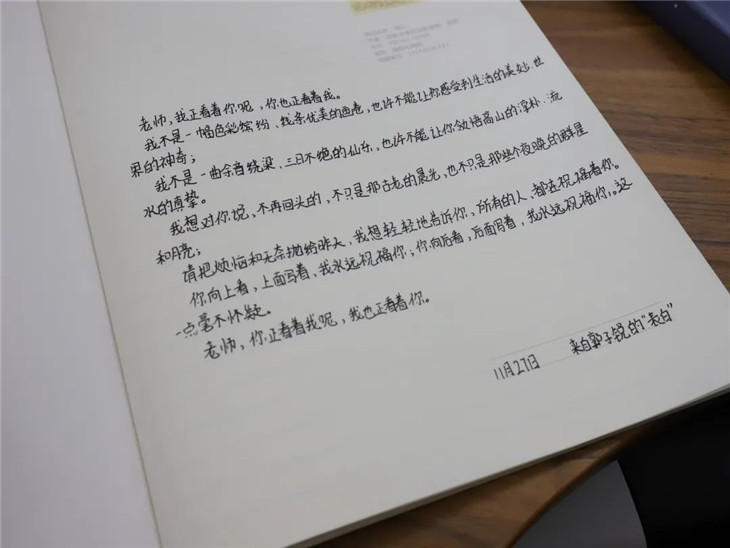 老师，我正看着你呢，你也正看着我。
我不是一幅色彩缤纷、线条优美的画卷，也许不能让你感受到生活的美妙、世
界的神奇；
我不是一曲余音绕梁、三日不绝的仙乐，也许不能让你领悟高山的淳朴、流
水的真挚。
我想对你说，不再回头的，不只是那古老的晨光，也不只是那些个夜晚的群星
和月亮；
请把烦恼和无奈抛给昨天，我想轻轻地告诉你，所有的人都在祝福着你。
你向上看，上面写着，我永远祝福你；你向后看，后面写着，我永远祝福你。这
一点毫不怀疑。
老师，你正看着我呢，我也正看着你。
11月27日 来自郭子锐的“表白”